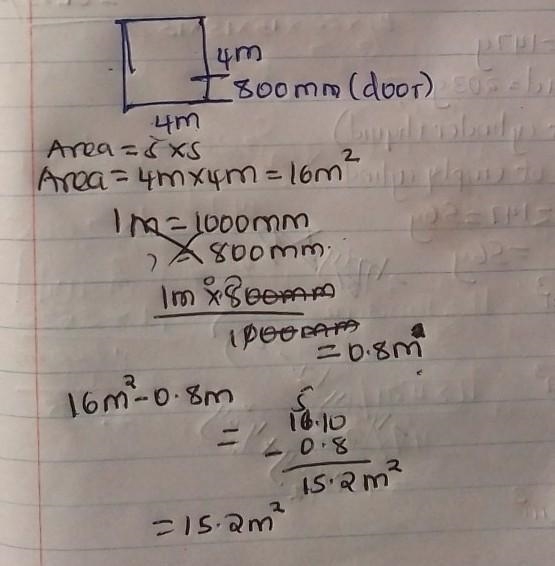 4m
800mm (door)
4m
Area = s x s
Area = 4m x 4m = 16m²
1m = 1000mm
? 800mm.
1m x 800mm
1000mm
= 0.8m
16m² - 0.8m
5
= 16.10
- 0.8
15.2m²
= 15.2m²